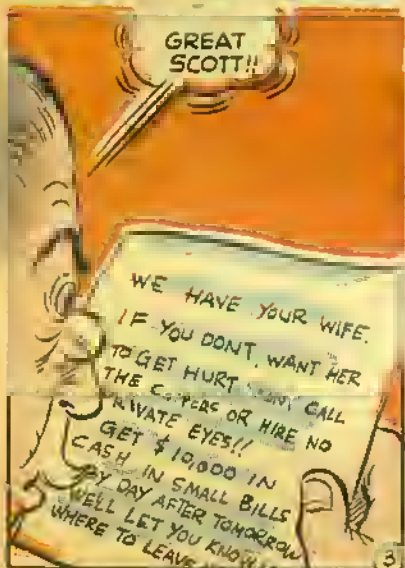 GREAT
SCOTT!!
WE HAVE YOUR WIFE.
IF YOU DONT WANT HER
TO GET HURT DONT CALL
THE COPPERS OR HIRE NO
PRIVATE EYES!!
GET $10,000 IN
CASH IN SMALL BILLS
BY DAY AFTER TOMORROW
WELL LET YOU KNOW
WHERE TO LEAVE
3